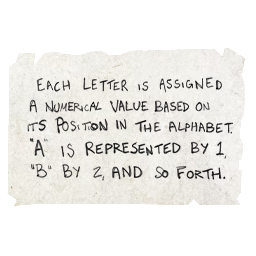 EACH LETTER IS ASSIGNED
A NUMERICAL VALUE BASED ON
ITS POSITION IN THE ALPHABET.
"A" IS REPRESENTED BY 1,
"B" BY 2, AND SO FORTH.